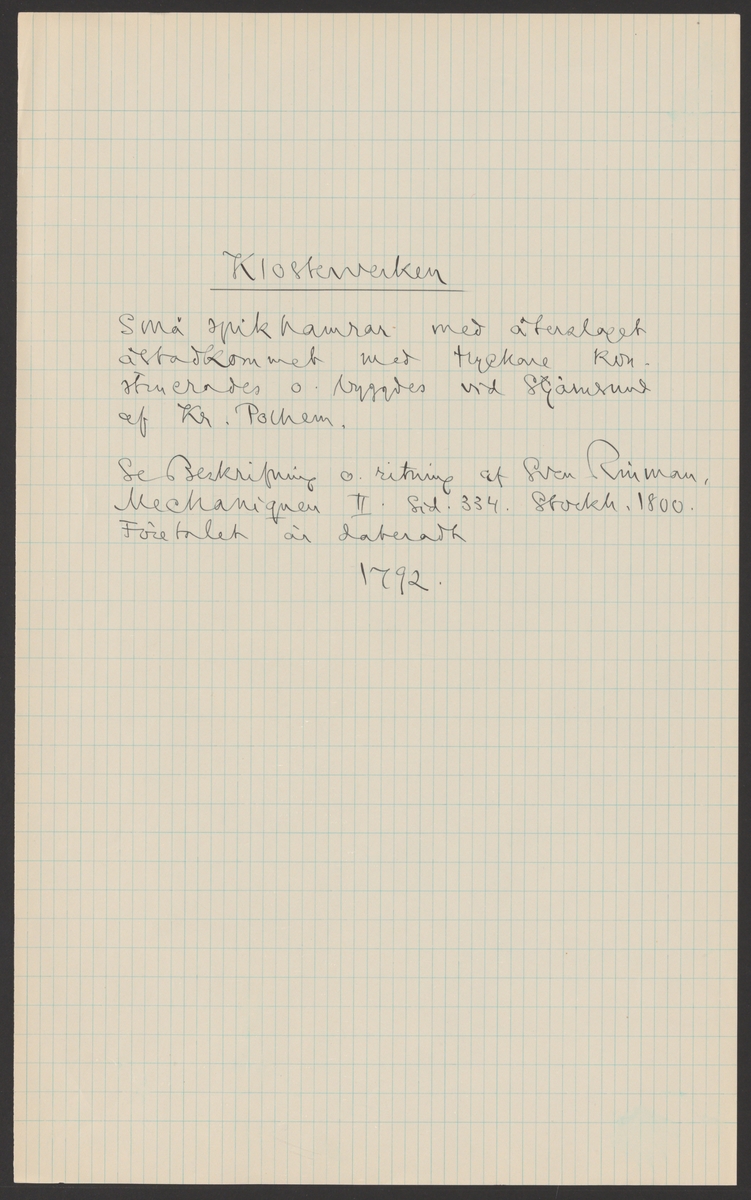 Klosterverken
Små spikhamrar med återslaget
åstadkommet med tryckare kon-
struerades o. byggdes vid Stjärnsund
af Kr. Polhem.
Se Beskrifning o. ritning af Sven Rinman,
Mechaniquen II. Sid. 334. Stockh. 1800.
Företalet är dateradt
1792.